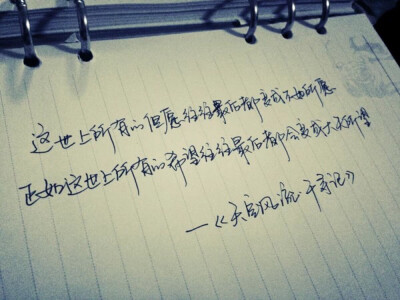 这世上所有的但愿往往最后都变成不如所愿
正如这世上所有的希望往往最后都会变成大失所望
—《天官风流·千寻记》